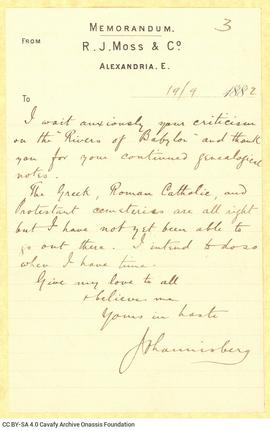 3
MEMORANDUM.
FROM
R. J. MOSS & Co.
ALEXANDRIA. E.
19/9 1882
TO
I wait anxiously your criticism
on the "Rivers of Babylon" and thank
you for your continued genealogical
notes.
The Greek, Roman Catholic, and
Protestant cemeteries are all right
but I have not yet been able to
go out there. I intend to do so
when I have time.
Give my love to all
& believe me
Yours in haste
Johannisberg
CC BY-SA 4.0 Cavafy Archive Onassis Foundation